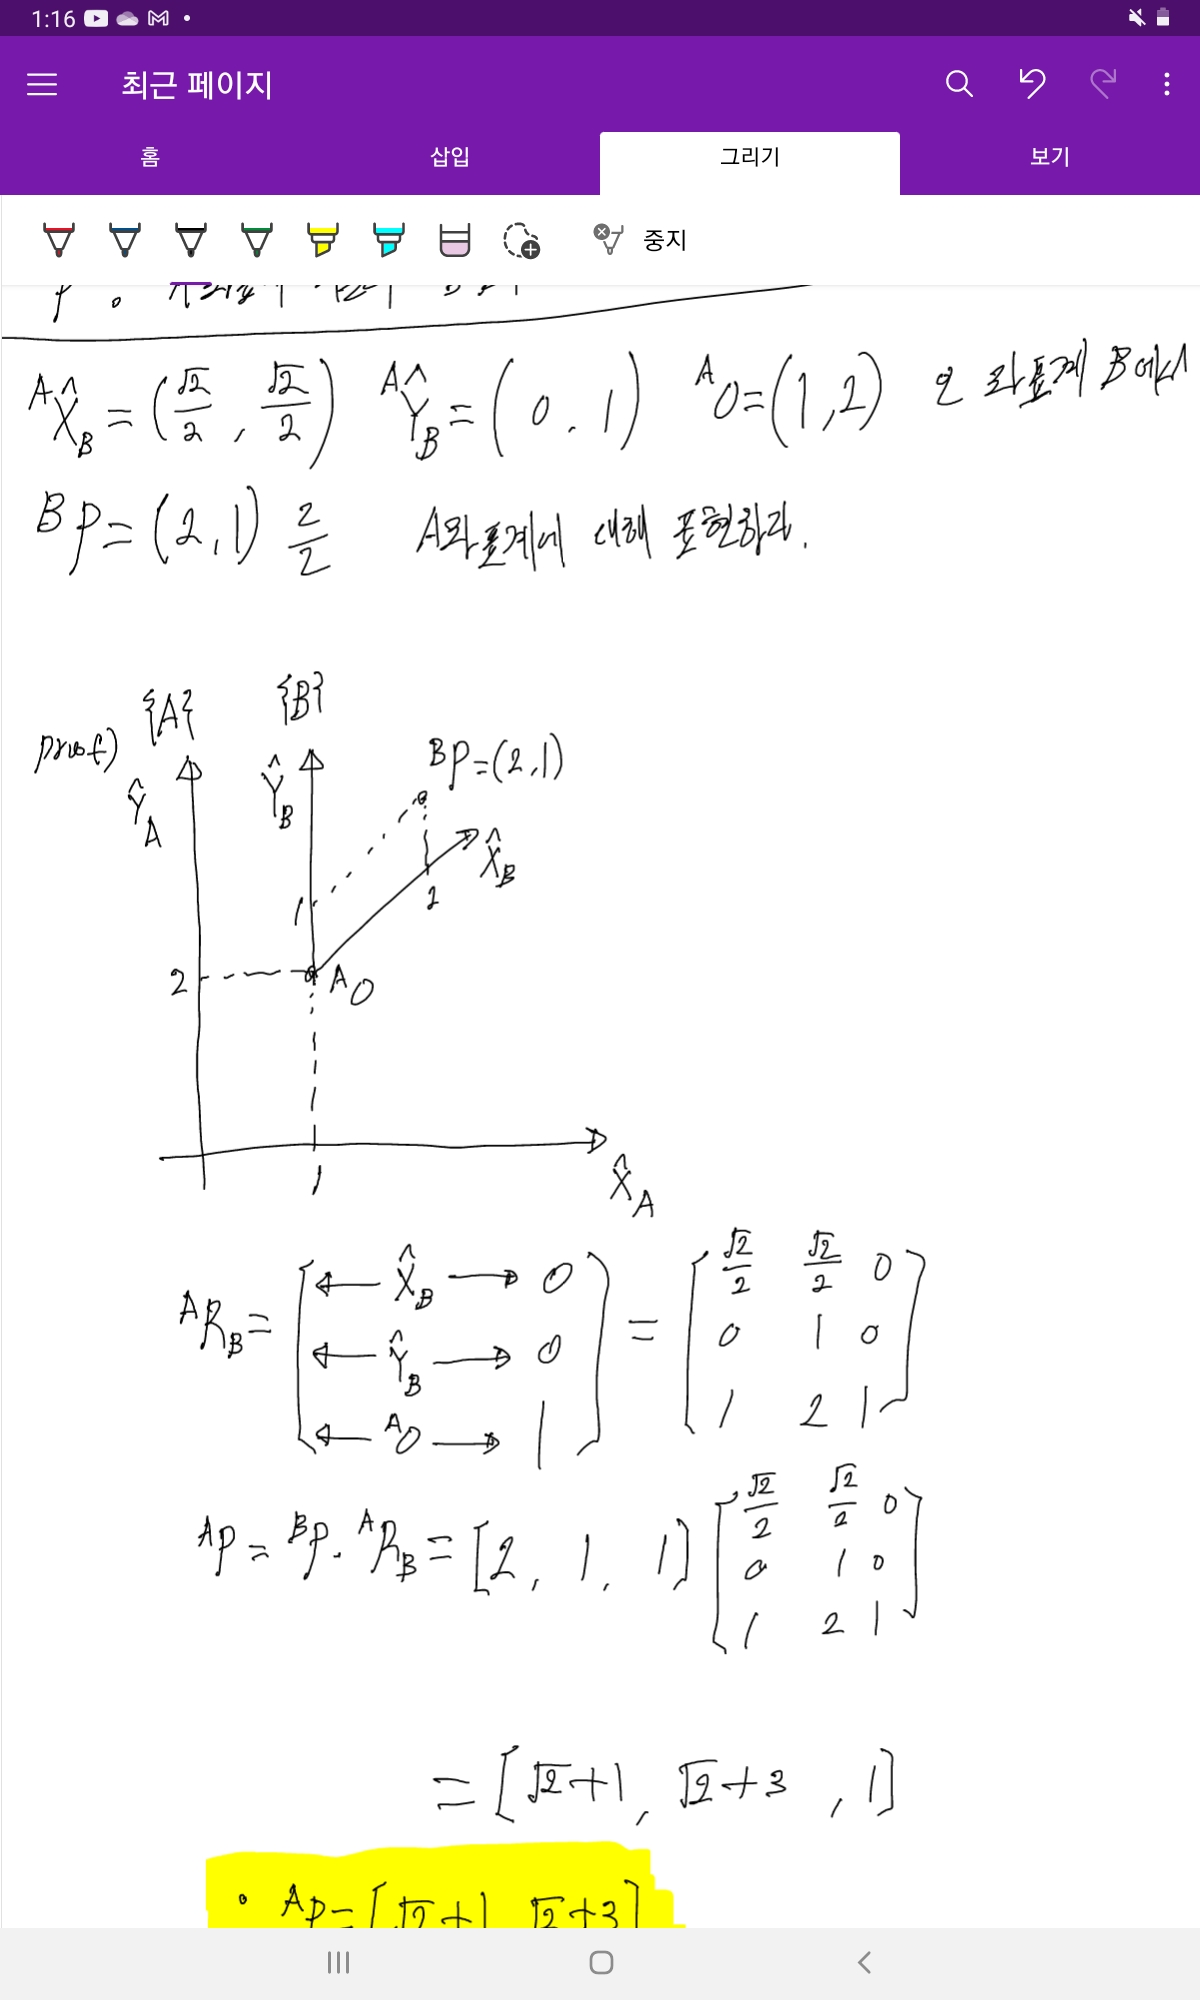 1:16
최근 페이지
홈 삽입 그리기 보기
중지
ᴬX̂_B = (√2/2, √2/2) ᴬŶ_B = (0, 1) ᴬO = (1,2) 인 좌표계 B에서
ᴮP = (2,1) 2/2 A좌표계에 대해 표현하라.
proof) {A} {B}
Ŷ_A Ŷ_B ᴮP=(2,1)
X̂_B
1 2
2 ᴬO
1
X̂_A
ᴬR_B = [← X̂_B → 0; ← Ŷ_B → 0; ← ᴬO → 1] = [√2/2 √2/2 0; 0 1 0; 1 2 1]
ᴬP = ᴮP · ᴬR_B = [2, 1, 1] [√2/2 √2/2 0; 0 1 0; 1 2 1]
= [√2+1, √2+3, 1]
ᴬP = [√2+1 √2+3]